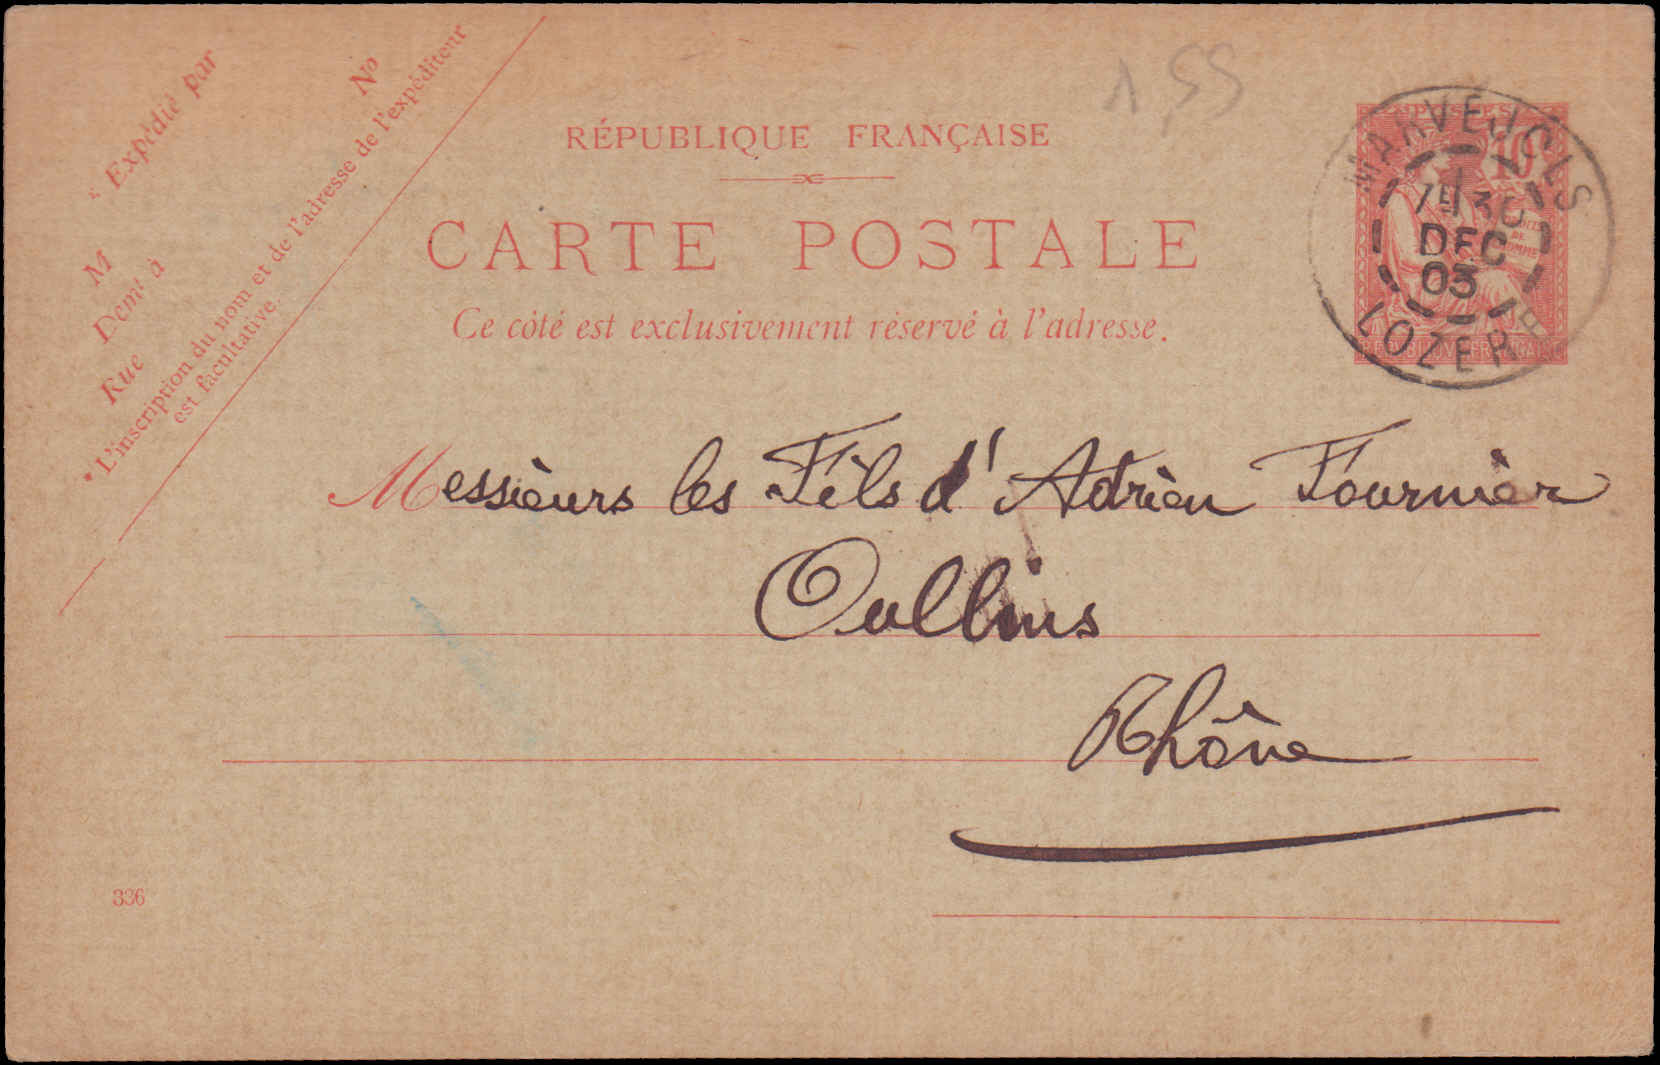 * Expédié par
Nº
M
Demt à
Rue
* L'inscription du nom et de l'adresse de l'expéditeur
est facultative.
RÉPUBLIQUE FRANÇAISE
CARTE POSTALE
Ce côté est exclusivement réservé à l'adresse.
MARVEJOLS
DEC
03
LOZERE
10
Messieurs les Fils d'Adrien Fournier
Oullins
Rhône
336